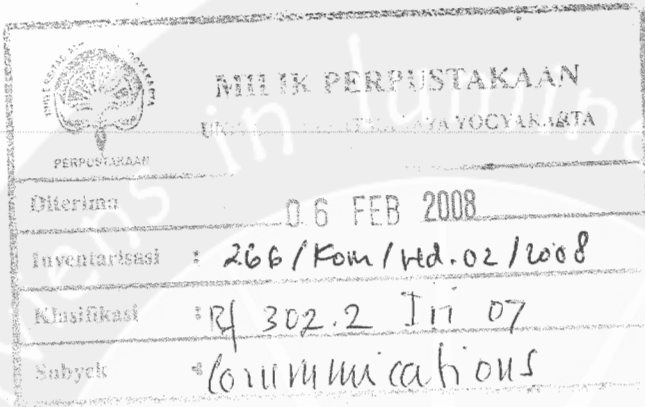 MILIK PERPUSTAKAAN
YOGYAKARTA
PERPUSTAKAAN
Diterima 06 FEB 2008
Inventarisasi : 266/Kom/Hd.02/2008
Klasifikasi : Rf 302.2 Iri 07
Subyek : Communications
in lumine